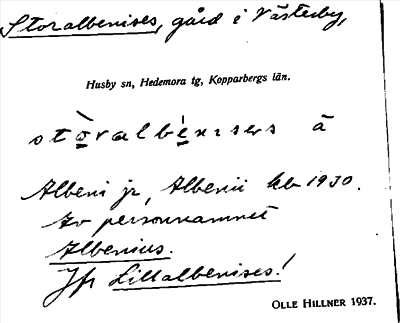 Storalbenises, gård i Västerby,
Husby sn, Hedemora tg, Kopparbergs län.
stòralbènısers å
Albeni jr, Albenii kb 1930.
Av personnamnet
Albenius.
Jfr Lillalbenises!
OLLE HILLNER 1937.